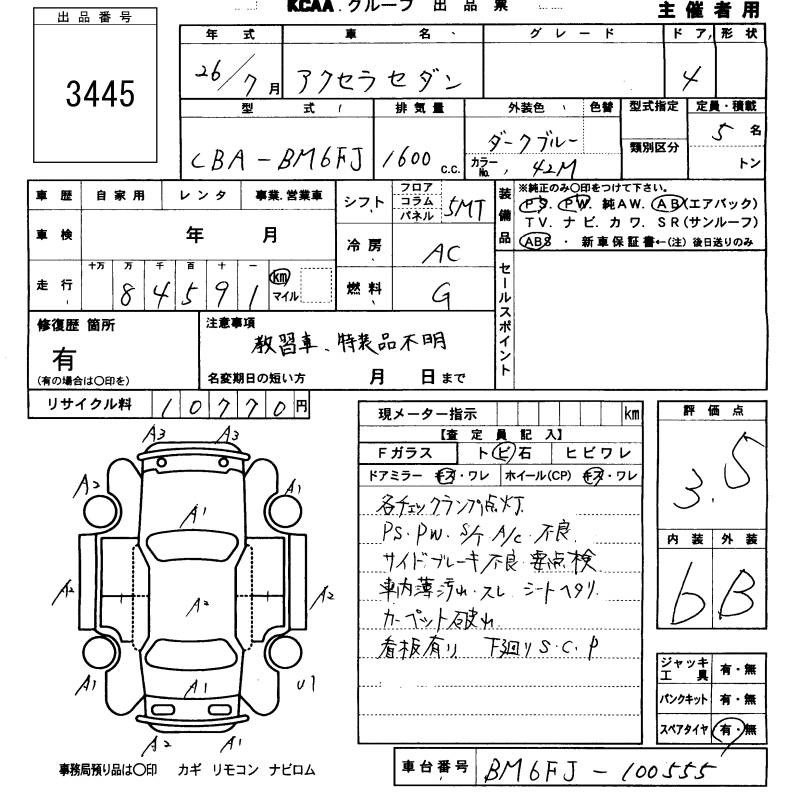 KCAA.グループ 出品票
主催者用
出品番号
3445
年式 車名 グレード ドア 形状
26/7月 アクセラセダン 4
型式 排気量 外装色 色替 型式指定 定員・積載
CBA-BM6FJ 1600 c.c. ダークブルー 類別区分 5名
カラーNo. 42M トン
車歴 自家用 レンタ 事業.営業車
車検 年 月
走行 十万 万 千 百 十 一
84591 km マイル
シフト フロア コラム パネル 5MT
冷房 AC
燃料 G
装備品 ※純正のみ〇印をつけて下さい。
PS. PW. 純AW. AB(エアバック)
TV. ナビ. カワ. SR(サンルーフ)
ABS ・ 新車保証書←(注) 後日送りのみ
セールスポイント
修復歴 箇所
有
(有の場合は〇印を)
注意事項
教習車、特装品不明
名変期日の短い方 月 日まで
リサイクル料 10770円
現メーター指示 km
【査定員記入】
Fガラス トビ石 ヒビワレ
ドアミラー キズ・ワレ ホイール(CP) キズ・ワレ
各チェックランプ点灯
PS.PW.S/T A/C 不良
サイドブレーキ不良 要点検
車内薄汚れ・スレ シートヘタリ
カーペット破れ
看板有り 下廻りS.C.P
評価点
3.5
内装 外装
6 B
ジャッキ工具 有・無
パンクキット 有・無
スペアタイヤ 有・無
A3 A3
A2 A1
A1
A2 A2 A2
A1 A1 U1
A2 A1
事務局預り品は〇印 カギ リモコン ナビロム
車台番号 BM6FJ-100555